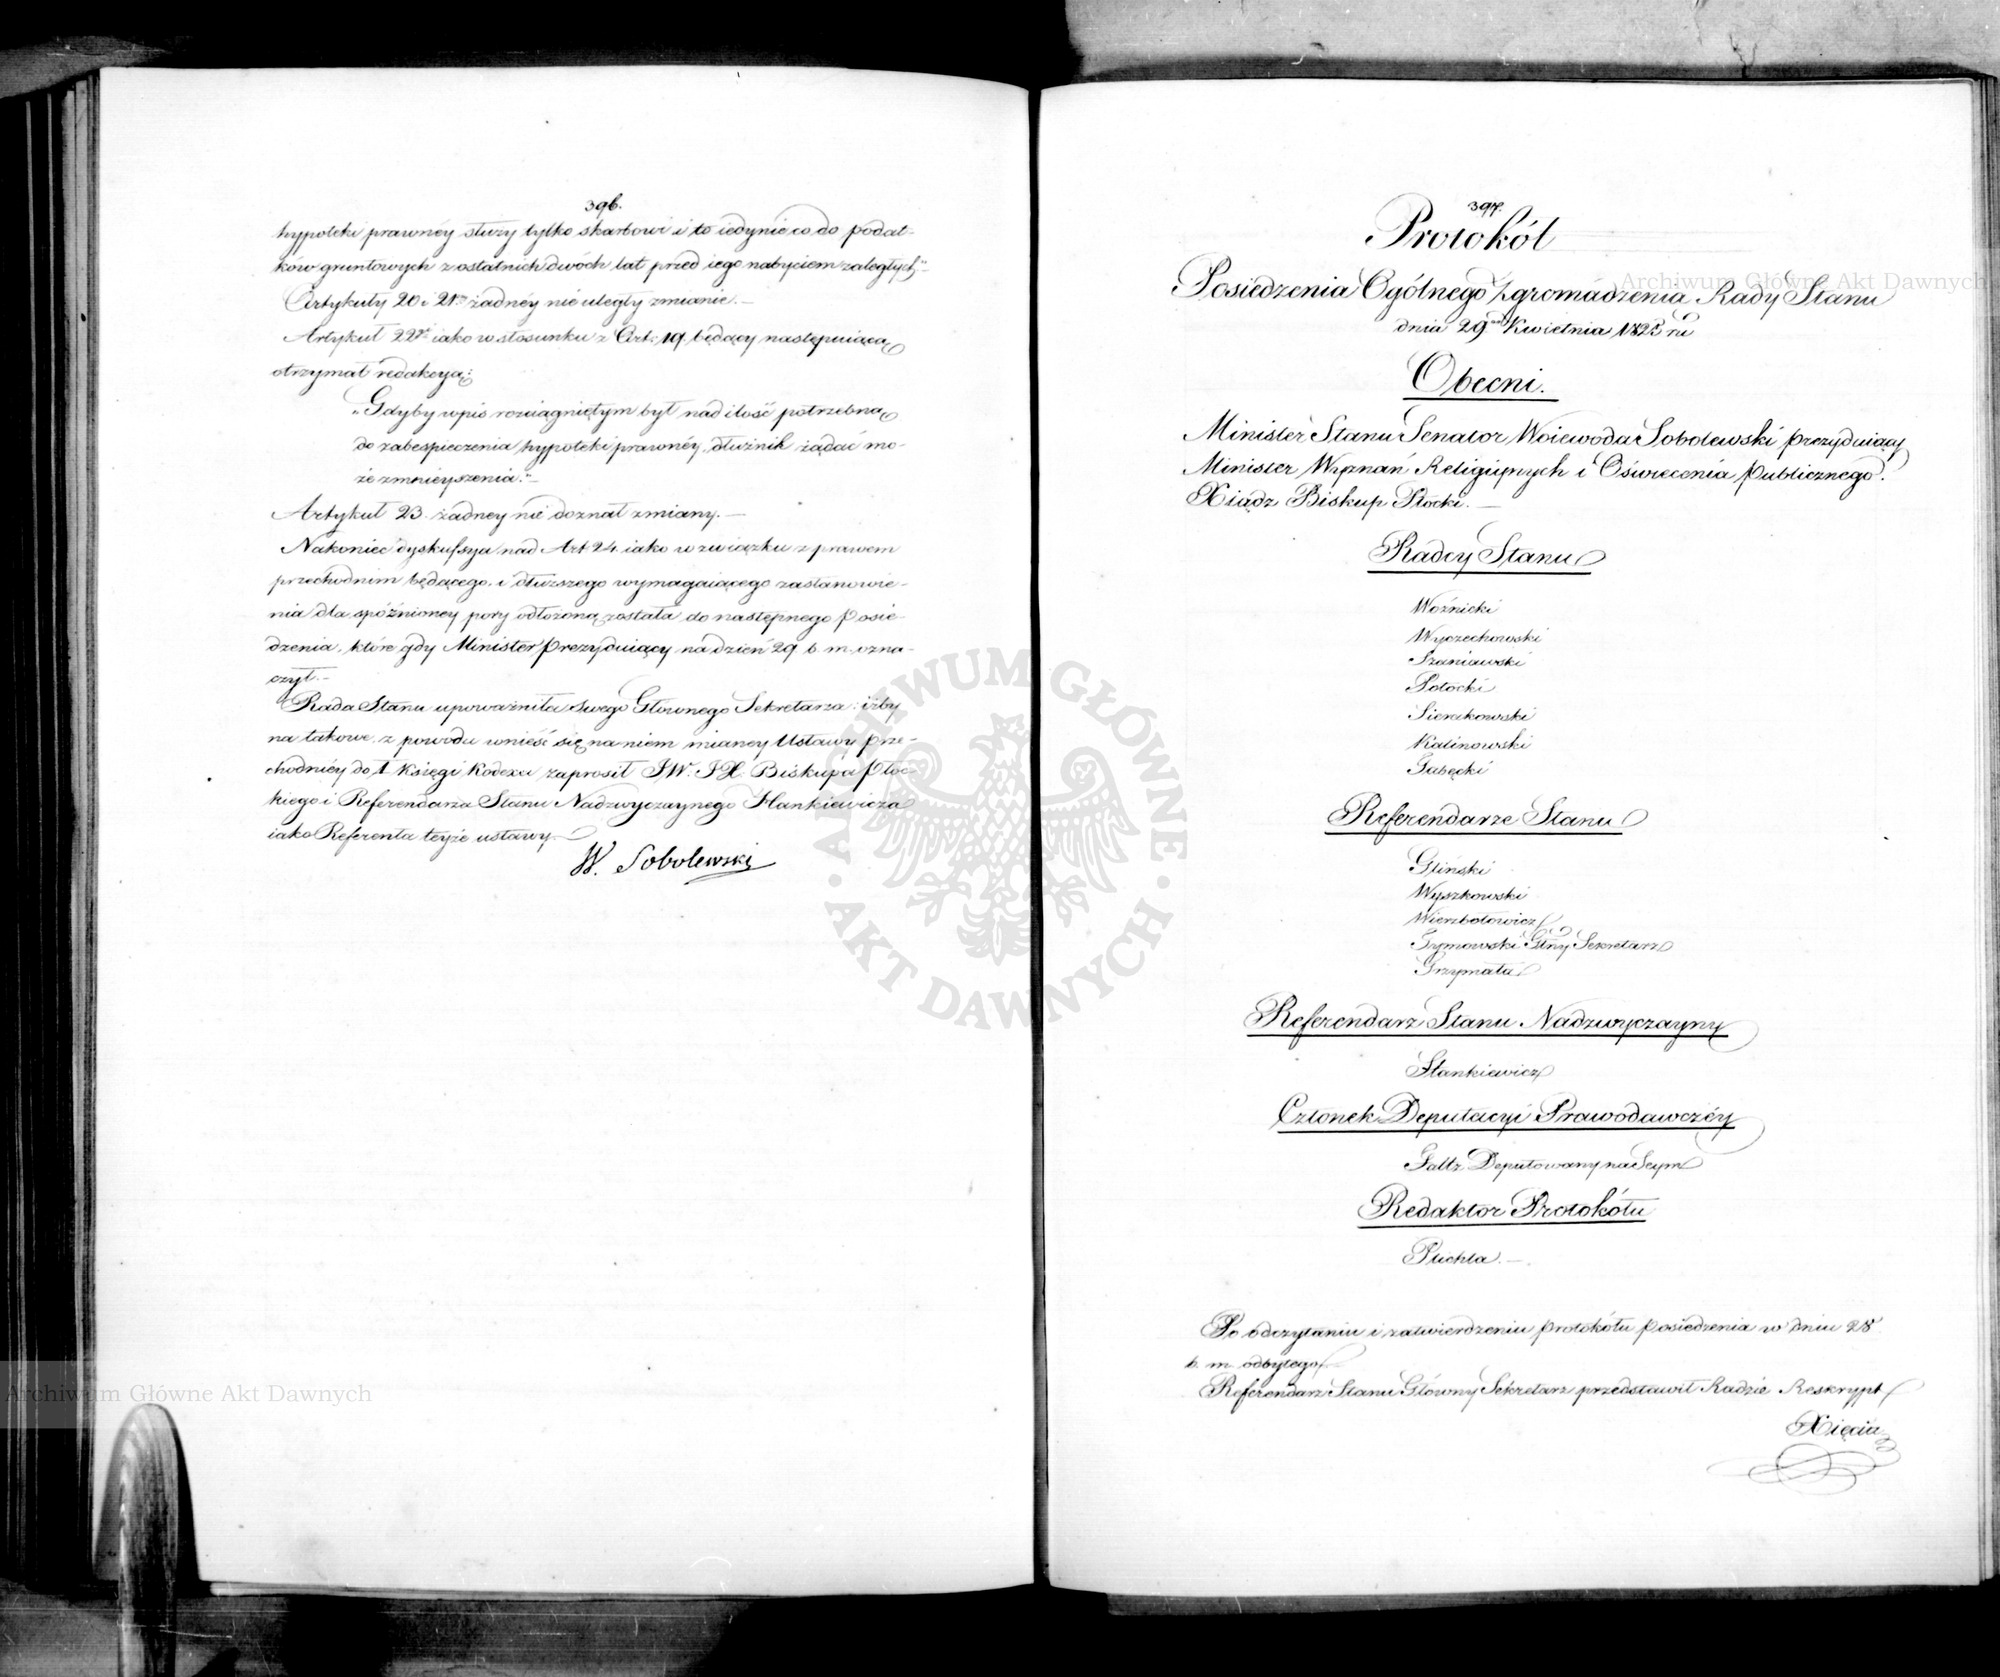 396.
hypoteki prawnéy służy tylko skarbowi i to iedynie co do podat-
ków gruntowych z ostatnich dwóch lat przed iego nabyciem zaległych,"-
Artykuły 20 i 21 żadnéy nie uległy zmianie.-
Artykuł 22 iako w stosunku z Art: 19 będący następuiącą
otrzymał redakcyą:
„Gdyby wpis rozciągniętym był nad ilość potrzebną
do zabespieczenia hypoteki prawnéy, dłużnik żądać mo-
że zmnieyszenia."-
Artykuł 23. żadney nie doznał zmiany.-
Nakoniec dyskussya nad Art 24. iako w związku z prawem
przechodnim będącego, i dłuższego wymagaiącego zastanowie-
nia dla spóźnioney pory odłożoną została do następnego Posie-
dzenia, które gdy Minister prezyduiący na dzień 29 b. m. ozna-
czył.-
Rada Stanu upoważniła swego Głównego Sekretarza: iżby
na takowe z powodu wnieść się na niem mianey Ustawy prze-
chodniéy do 1 Księgi Kodexu zaprosił JW. JX. Biskupa Płoc-
kiego i Referendarza Stanu Nadzwyczaynego Hankiewicza
iako Referenta teyże ustawy.-
W. Sobolewski
397.
Protokół
Posiedzenia Ogólnego Zgromadzenia Rady Stanu
dnia 29 Kwietnia 1825 ru
Obecni.
Minister Stanu Senator Woiewoda Sobolewski prezyduiący
Minister Wyznań Religiynych i Oświecenia Publicznego.
Xiądz Biskup Płocki.-
Radcy Stanu
Woźnicki
Wyczechowski
Szaniawski
Potocki
Sierakowski
Kalinowski
Gabęcki
Referendarze Stanu
Gliński
Wyszkowski
Wierzbołowicz
Tymowski Głny Sekretarz
Grzymała
Referendarz Stanu Nadzwyczayny
Hankiewicz
Członek Deputacyi Prawodawczéy
Faltz Deputowany na Seym
Redaktor Protokółu
Plichta.-
Po odczytaniu i zatwierdzeniu protokółu posiedzenia w dniu 28
b. m. odbytego,
Referendarz Stanu Główny Sekretarz przedstawił Radzie Reskrypt
Xięcia
Archiwum Główne Akt Dawnych
Archiwum Główne Akt Dawnych
ARCHIWUM GŁÓWNE
AKT DAWNYCH